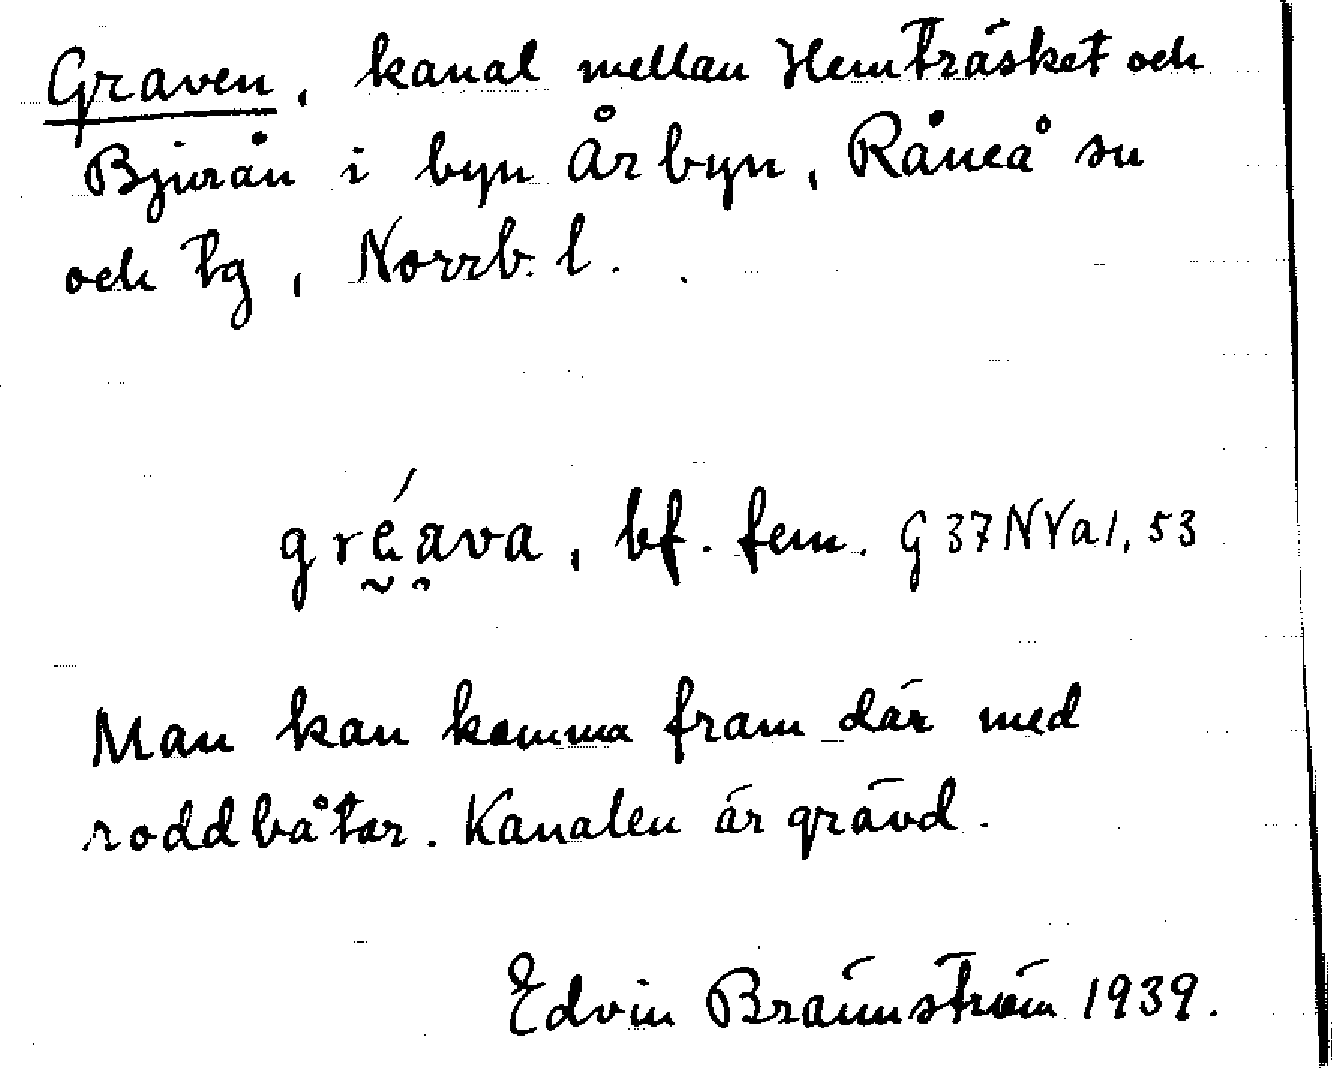 Graven, kanal mellan Hemträsket och
Bjurån i byn Årbyn, Råneå sn
och tg, Norrb. l.
gré̯a̯va, bf. fem. G 37 N V a 1, 53
Man kan komma fram där med
roddbåtar. Kanalen är grävd.
Edvin Brännström 1939.